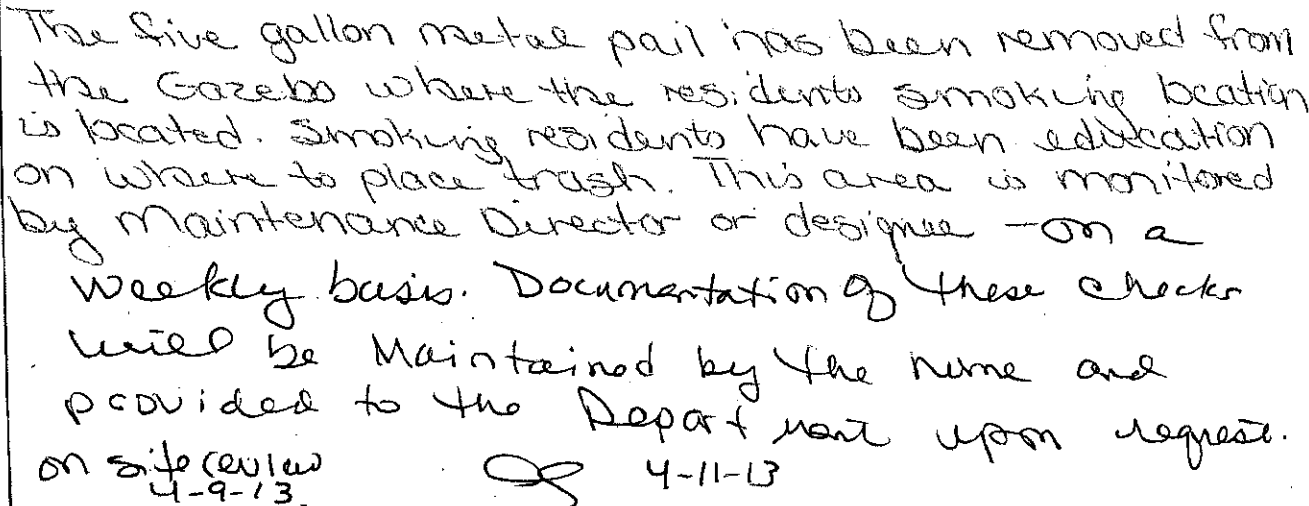 The five gallon metal pail has been removed from
the Gazebo where the residents smoking location
is located. Smoking residents have been edutcation
on where to place trash. This area is monitored
by Maintenance Director or designee - on a
weekly basis. Documentation of these checks
will be Maintained by the home and
provided to the Department upon request.
on site review 4-11-13
4-9-13